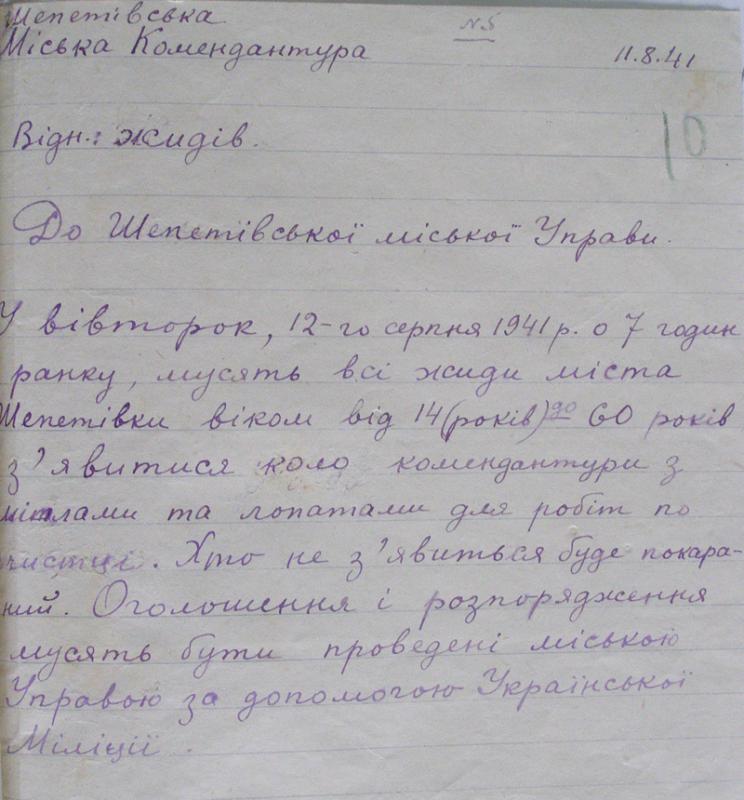 Шепетівська
N5
Міська Комендантура
11.8.41
10
Відн.: жидів.
До Шепетівської міської Управи.
У вівторок, 12-го серпня 1941 р. о 7 годин
ранку, мусять всі жиди міста
Шепетівки віком від 14 (років) до 60 років
з'явитися коло комендантури з
мітлами та лопатами для робіт по
чистці. Хто не з'явиться буде покара-
ний. Оголошення і розпорядження
мусять бути проведені міською
Управою за допомогою Української
Міліції.